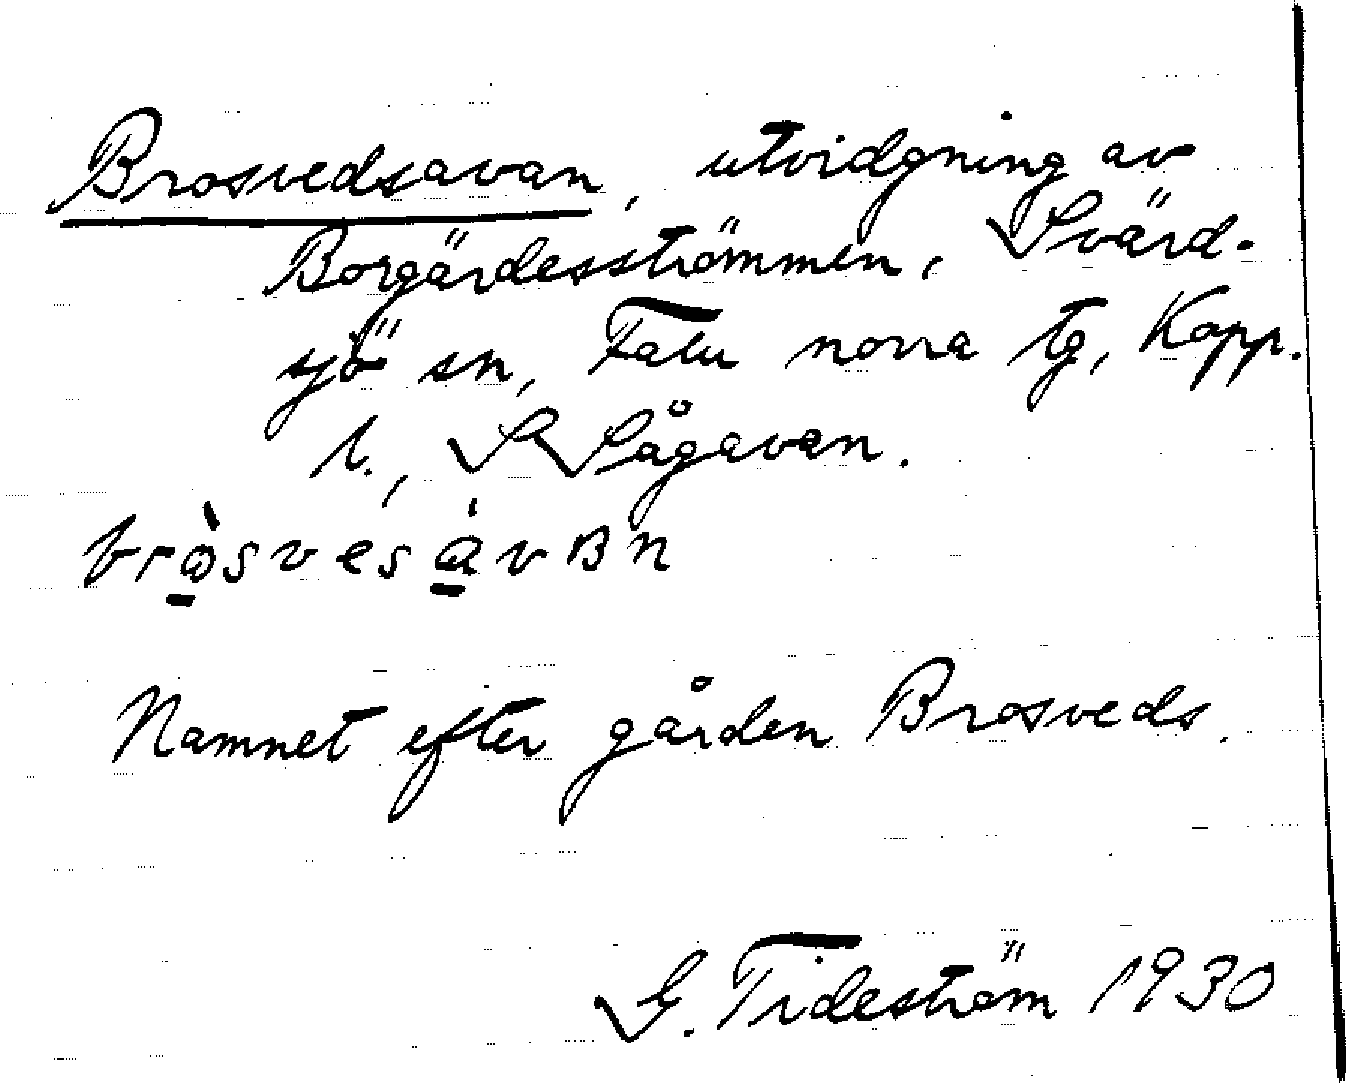 Brosvedsavan, utvidgning av
Borgärdesströmmen, Svärd-
sjö sn, Falu norra tg, Kopp.
l., S Sågavan.
brå̀svesa̍vʙn
Namnet efter gården Brosveds.
G. Tideström 1930